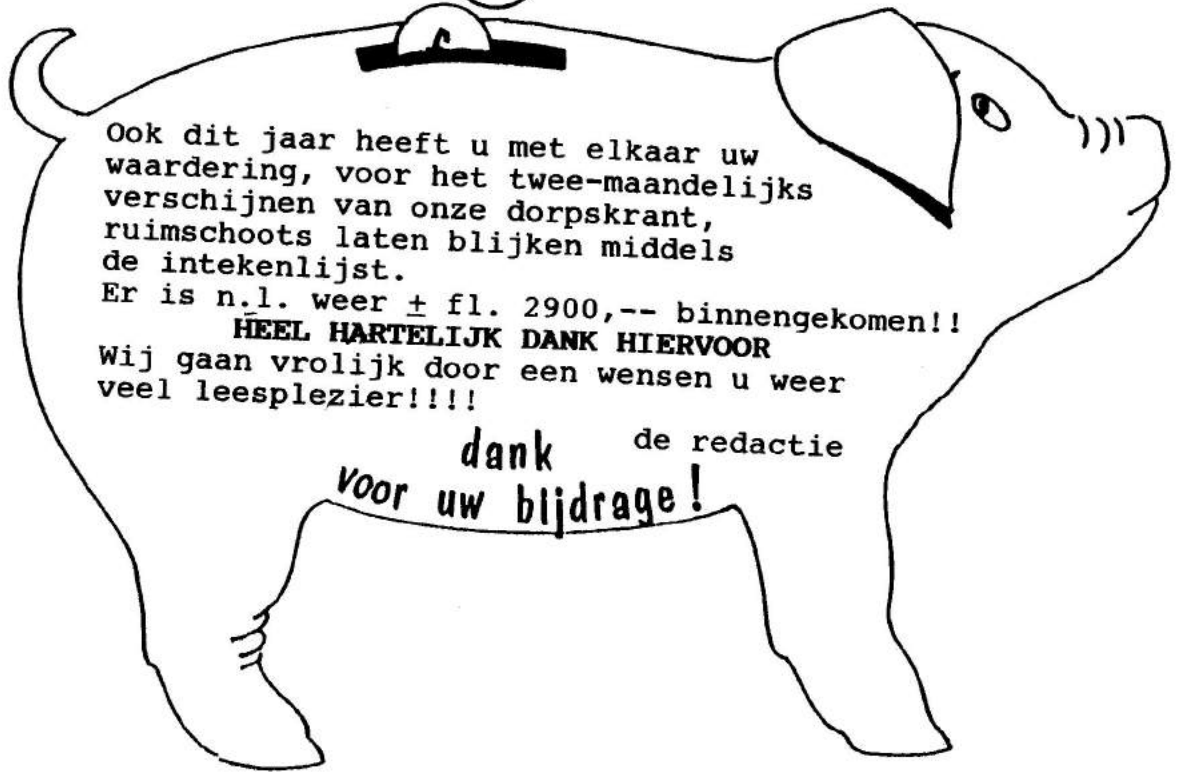 Ook dit jaar heeft u met elkaar uw
waardering, voor het twee-maandelijks
verschijnen van onze dorpskrant,
ruimschoots laten blijken middels
de intekenlijst.
Er is n.l. weer ± fl. 2900,-- binnengekomen!!
HEEL HARTELIJK DANK HIERVOOR
Wij gaan vrolijk door een wensen u weer
veel leesplezier!!!!
de redactie
dank
voor uw bijdrage!